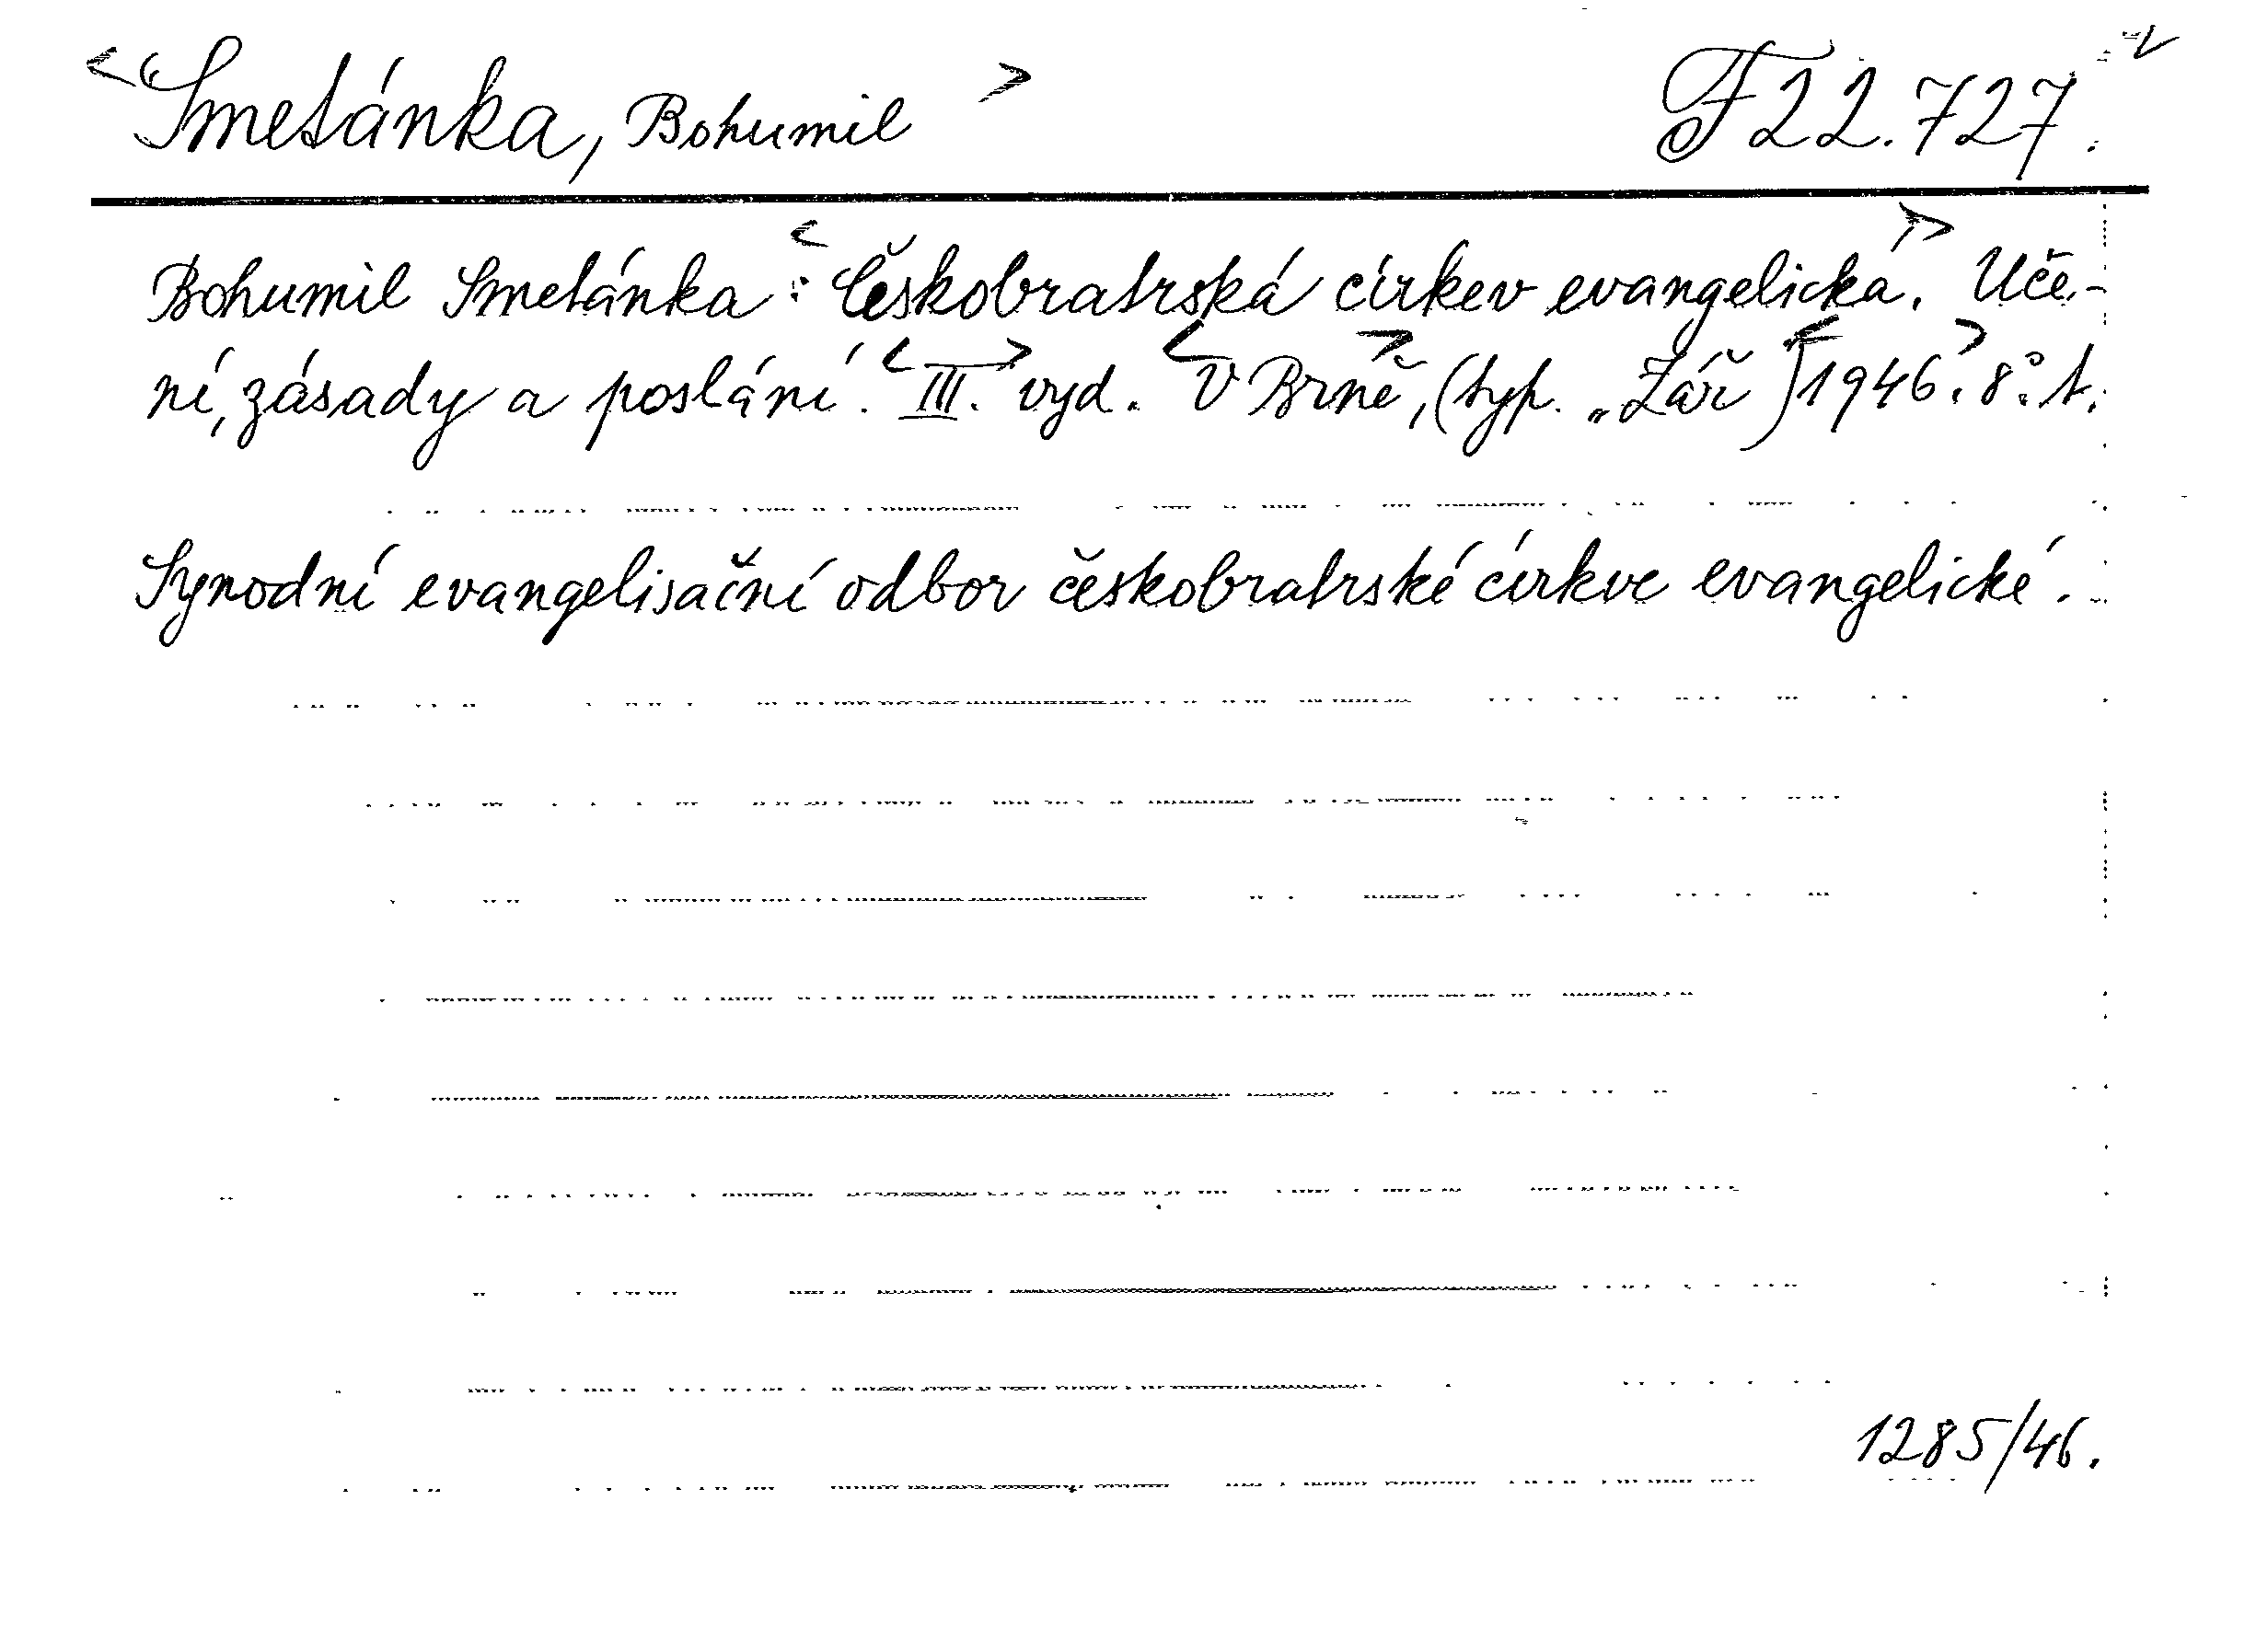 <Smetánka, Bohumil> F 22.727.
Bohumil Smetánka: <Českobratrská církev evangelická.> Uče-
ní, zásady a poslání. <III.> vyd. <V Brně>, (typ. „Zář) <1946>. 8°. t.
Synodní evangelisační odbor českobratrské církve evangelické.
1285/46.